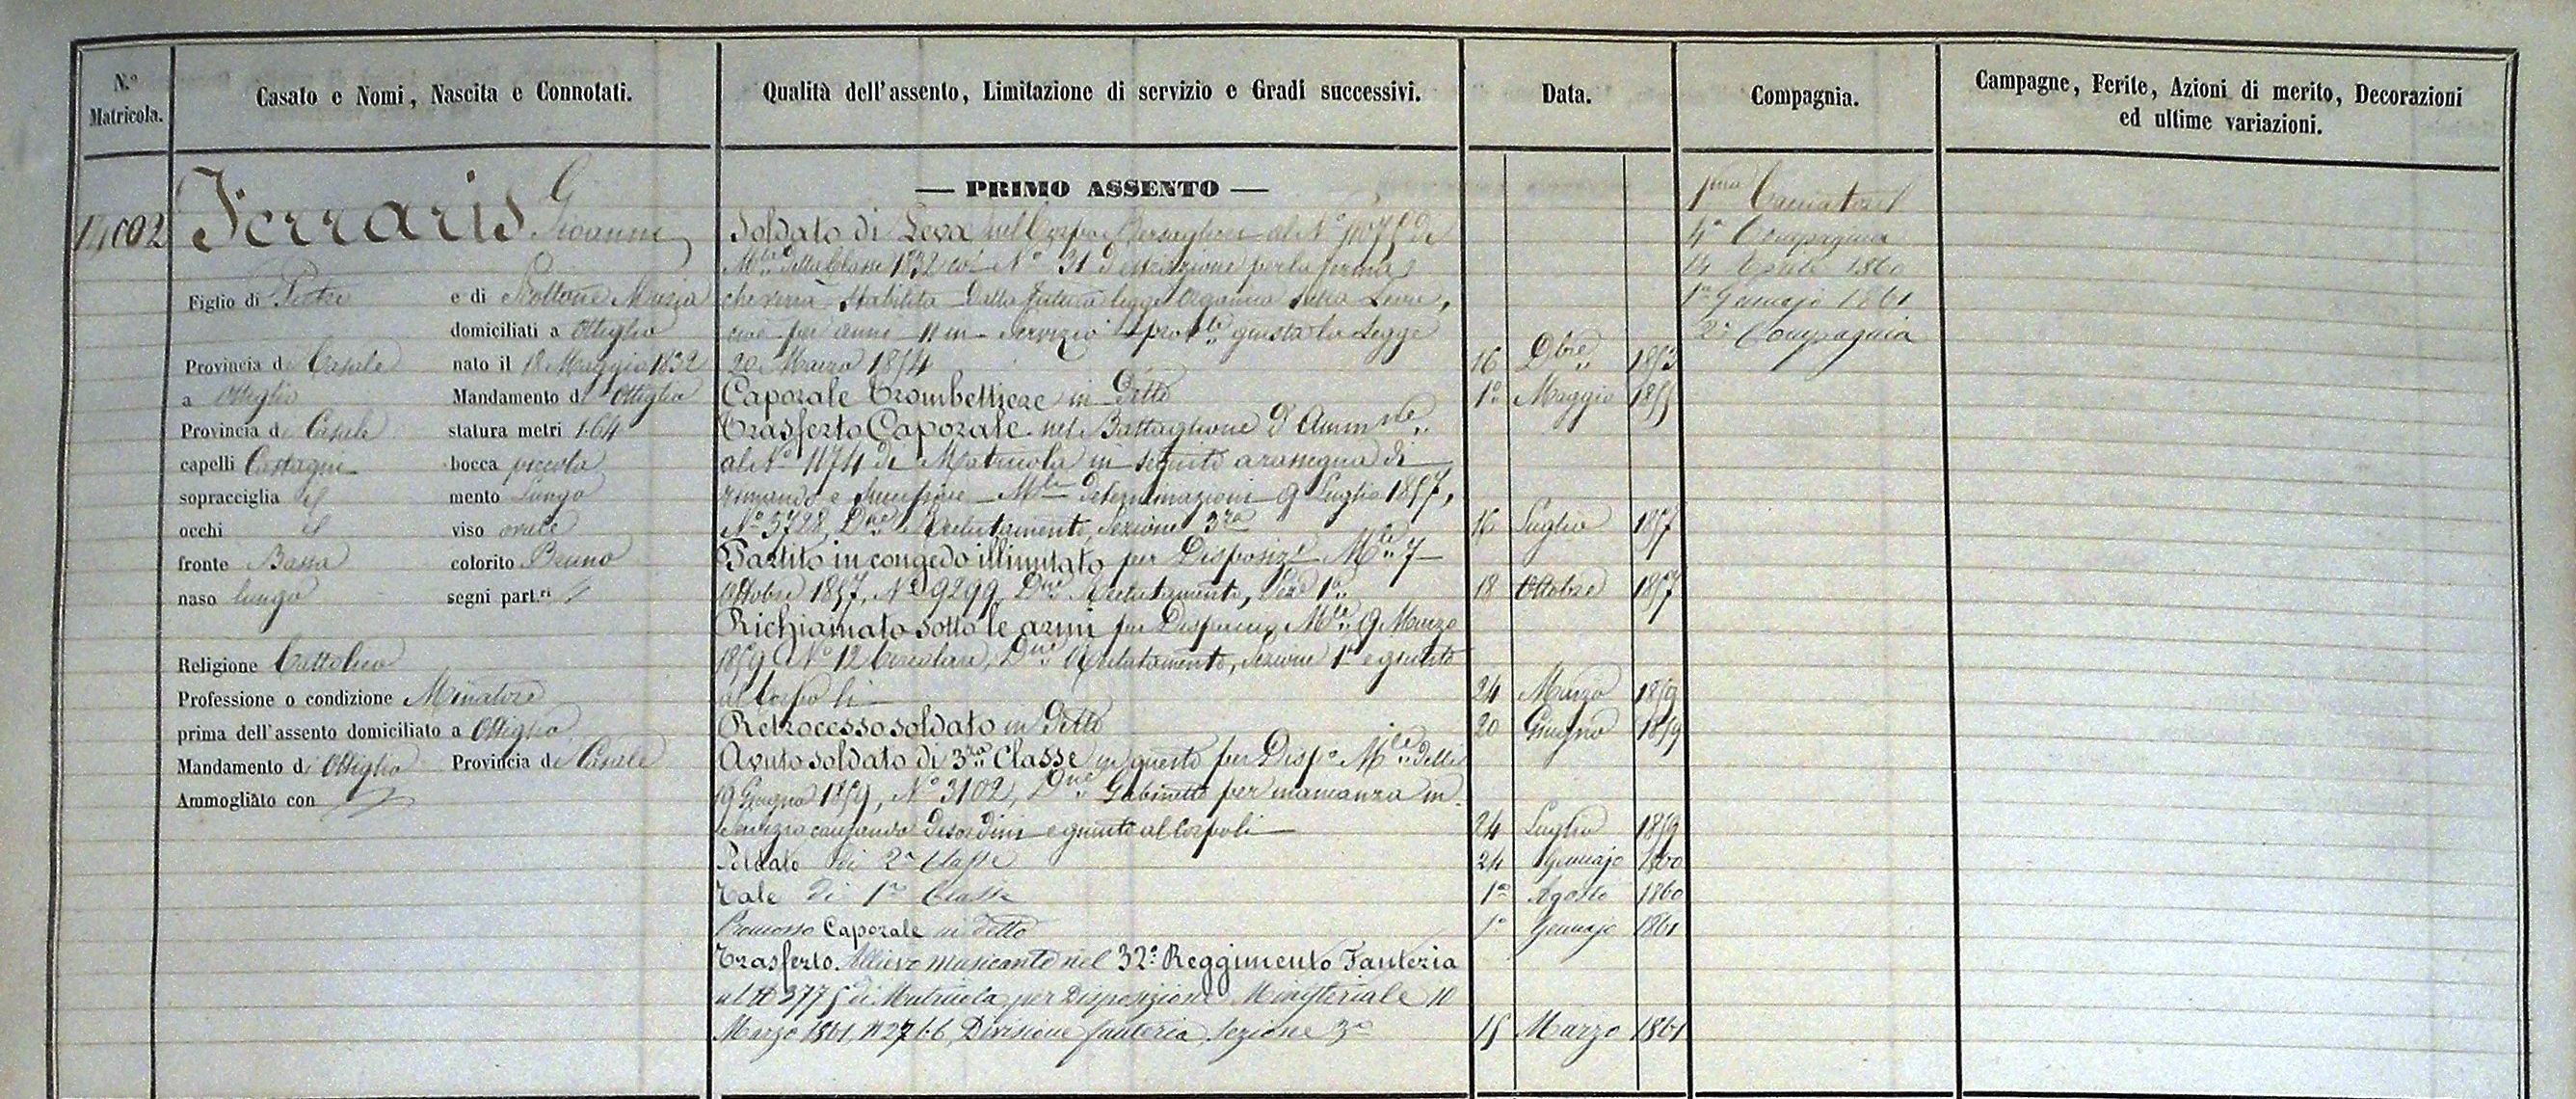 N.º Matricola.
Casato e Nomi, Nascita e Connotati.
Qualità dell'assento, Limitazione di servizio e Gradi successivi.
Data.
Compagnia.
Campagne, Ferite, Azioni di merito, Decorazioni
ed ultime variazioni.
Ferraris Gioanni
Figlio di Pietro e di Maria
domiciliati a Ottiglio
Provincia di Casale nato il 18 Maggio 1832
a Ottiglio Mandamento di Ottiglio
Provincia di Casale statura metri 1.64
capelli Castagni bocca piccola
sopracciglia id mento Lungo
occhi id viso ovale
fronte Bassa colorito Bruno
naso lungo segni part.ri
Religione Cattolica
Professione o condizione Minatore
prima dell'assento domiciliato a Ottiglio
Mandamento di Ottiglio Provincia di Casale
Ammogliato con
— PRIMO ASSENTO —
Soldato di Leva nel Corpo Bersaglieri al Nº di
M.la della Classe 1832 col Nº 31 d'estrazione per la ferma
che verrà stabilita dalla futura legge organica sulla Leva,
cioè per anni 11 in servizio giusta la Legge
20 Marzo 1854 16 Dbre 1853
Caporale Trombettiere in Detto 1º Maggio 1855
Trasferto Caporale nel Battaglione d'Ammne
al Nº 1174 di Matricola in seguito a rassegna di
rimando e Mle determinazione 9 Luglio 1857,
Nº 5728, Dne Reclutamento, Sezione 3za 16 Luglio 1857
Partito in congedo illimitato per Disposize Mle 7
Ottobre 1857, Nº 9299, Dne Reclutamento, Sezne 1a 18 Ottobre 1857
Richiamato sotto le armi per Disposize Mle 9 Marzo
1859 Nº 12 Circolare, Dne Reclutamento, Sezione 1a e giunto
al Corpo li 24 Marzo 1859
Retrocesso soldato in Detto 20 Giugno 1859
Avuto soldato di 3za Classe in questo per Dispe Mle delli
19 Giugno 1859, Nº 3102, Dne Gabinetto per mancanza in
servizio causando disordini e giunto al Corpo li 24 Luglio 1859
Soldato di 2a Classe 24 Gennajo 1860
Tale di 1a Classe 1º Agosto 1860
Promosso Caporale in detto 1º Gennajo 1861
Trasferto Allievo musicante nel 32º Reggimento Fanteria
al Nº 3775 di Matricola per Disposizione Ministeriale 10
Marzo 1861, Nº 2766, Divisione fanteria, Sezione 3a 15 Marzo 1861
1ma Cacciatori
4a Compagnia
14 Aprile 1860
1º Gennajo 1861
2a Compagnia